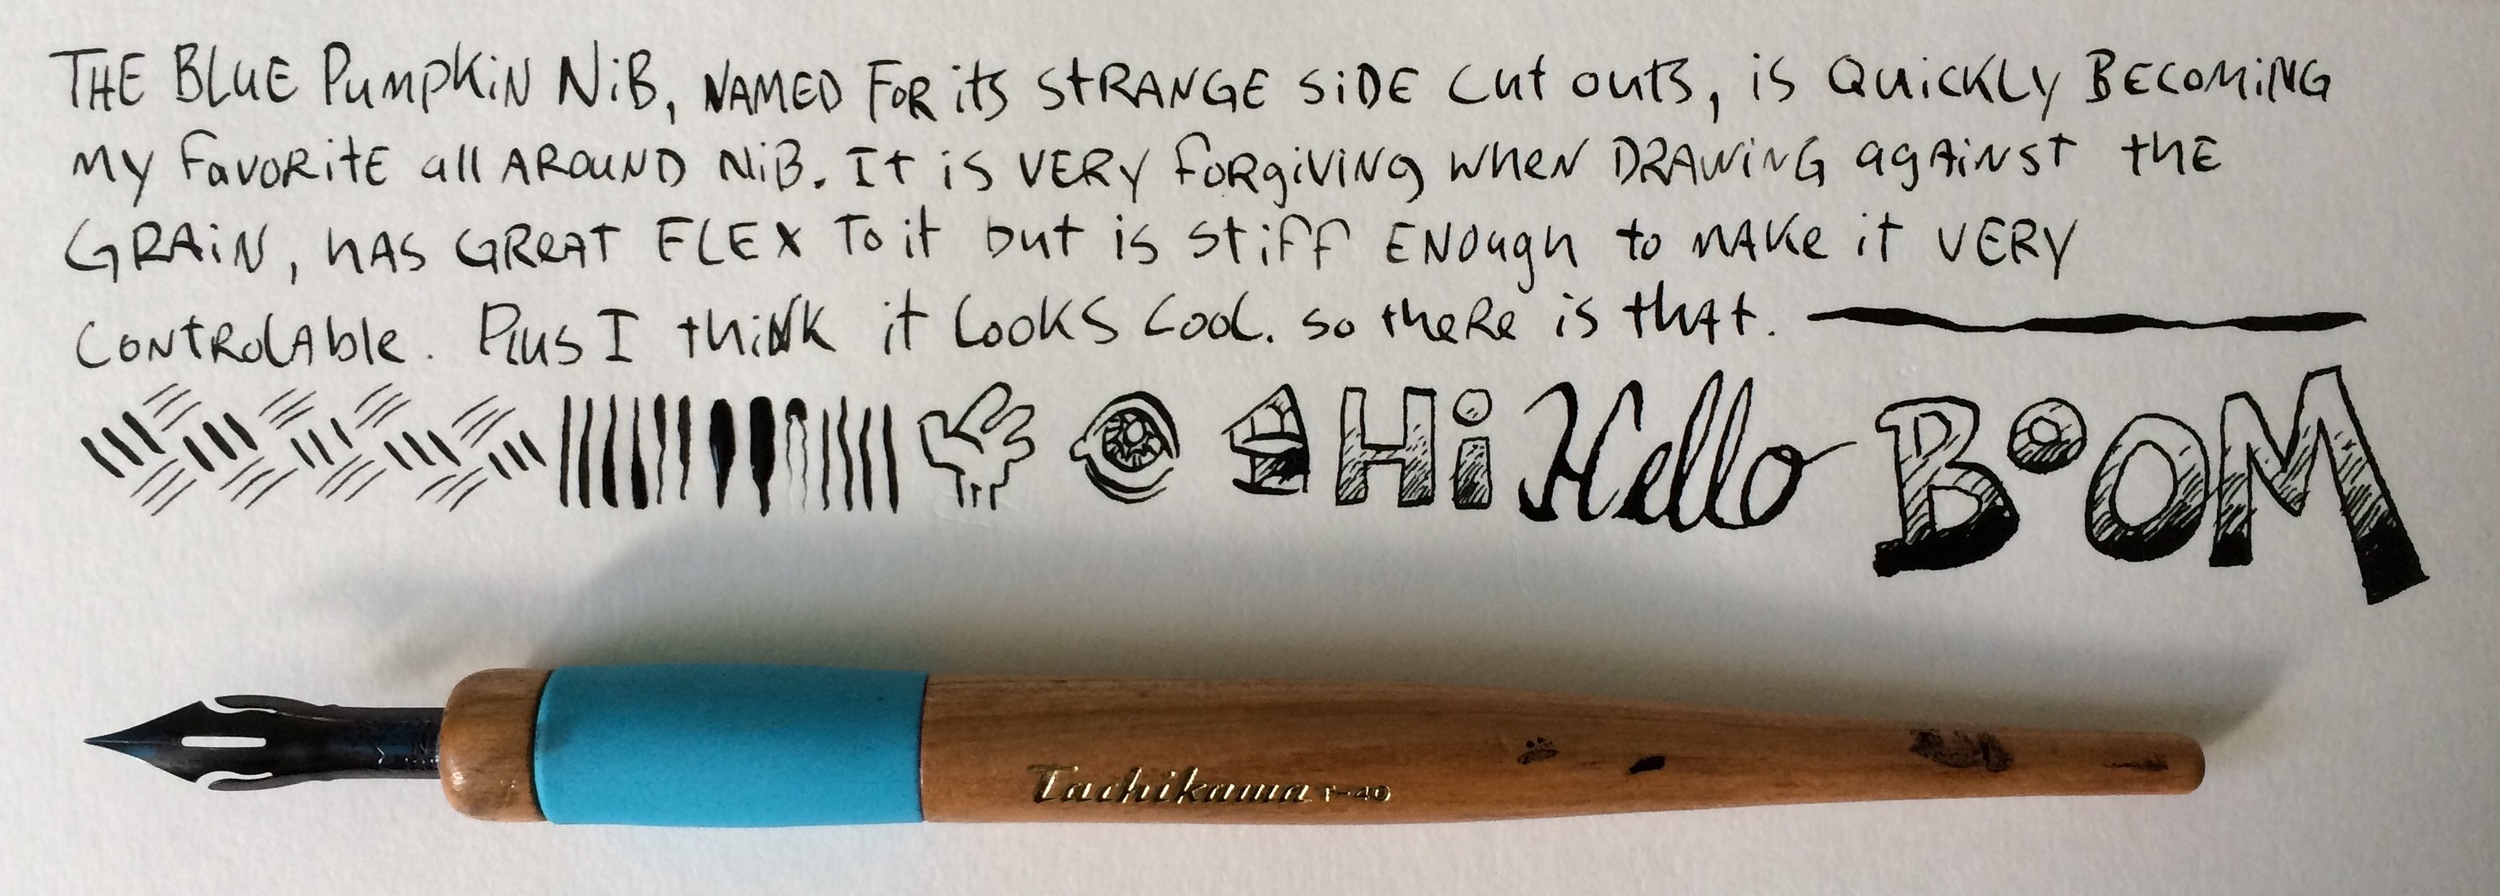 THE BLUE PUMPKIN NIB, NAMED FOR its STRANGE SIDE Cut outs, is QUICKLY BECOMING
MY FAVORITE all AROUND NIB. It is VERY FORgiVING WHEN DRAWING agAINST thE
GRAIN, hAS GREAT FLEX To it but is stiff ENOugh to MAKE it VERY
CONTROLAblE. Plus I thiNK it LooKS COOL. so theRe is thAt.
Hi Hello BOOM
Tachikawa T-40